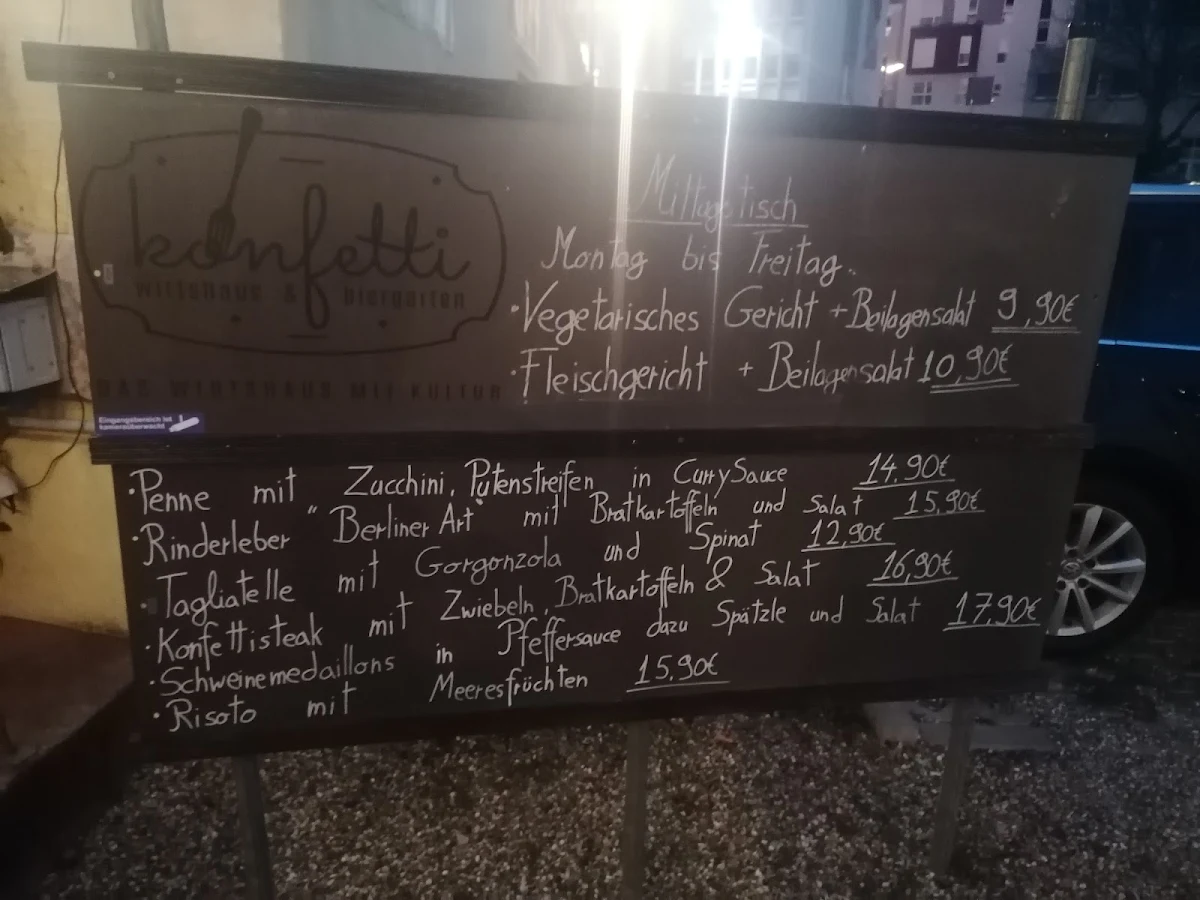 konfetti
wirtshaus & biergarten
DAS WIRTSHAUS MIT KULTUR
Eingangsbereich ist
kameraüberwacht
Mittagstisch
Montag bis Freitag
·Vegetarisches Gericht + Beilagensalat 9,90€
·Fleischgericht + Beilagensalat 10,90€
·Penne mit Zucchini, Putenstreifen in CurrySauce 14.90€
·Rinderleber "Berliner Art" mit Bratkartoffeln und Salat 15,90€
·Tagliatelle mit Gorgonzola und Spinat 12,90€
·Konfettisteak mit Zwiebeln, Bratkartoffeln & Salat 16,90€
·Schweinemedaillons in Pfeffersauce dazu Spätzle und Salat 17,90€
·Risoto mit Meeresfrüchten 15,90€